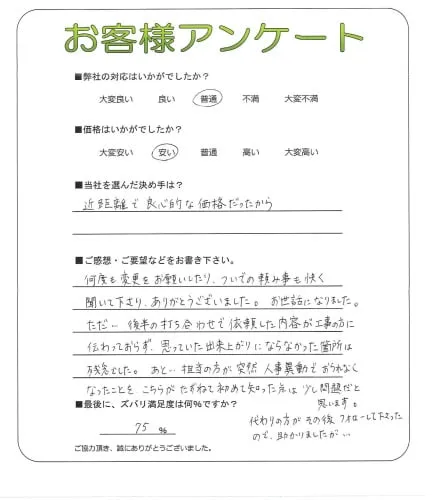 お客様アンケート
■弊社の対応はいかがでしたか?
大変良い 良い 普通 不満 大変不満
■価格はいかがでしたか?
大変安い 安い 普通 高い 大変高い
■当社を選んだ決め手は?
近距離で良心的な価格だったから
■ご感想・ご要望などをお書き下さい。
何度も変更をお願いしたり、ついでの頼み事も快く
聞いて下さり、ありがとうございました。お世話になりました。
ただ… 後半の打ち合わせで依頼した内容が工事の方に
伝わっておらず、思っていた出来上がりにならなかった箇所は
残念でした。あと… 担当の方が突然 人事異動でおられなく
なったことを、こちらがたずねて初めて知った点は少し問題だと
思います。
■最後に、ズバリ満足度は何%ですか?
代わりの方がその後フォローして下さった
75 %
ので、助かりましたが…
ご協力頂き、誠にありがとうございました。